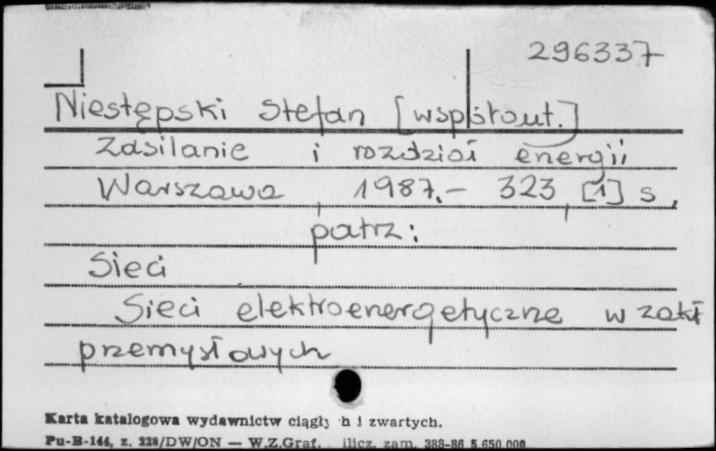 296337
Niestępski Stefan [współaut.]
Zasilanie i rozdział energii
Warszawa, 1987.- 323, [1] s.
patrz:
Sieci
Sieci elektroenergetyczne w zakł
przemysłowych
Karta katalogowa wydawnictw ciągły h i zwartych.
Pu-B-144, z. 228/DW/ON — W.Z.Graf. ilicz. zam. 388-86 5.650.000